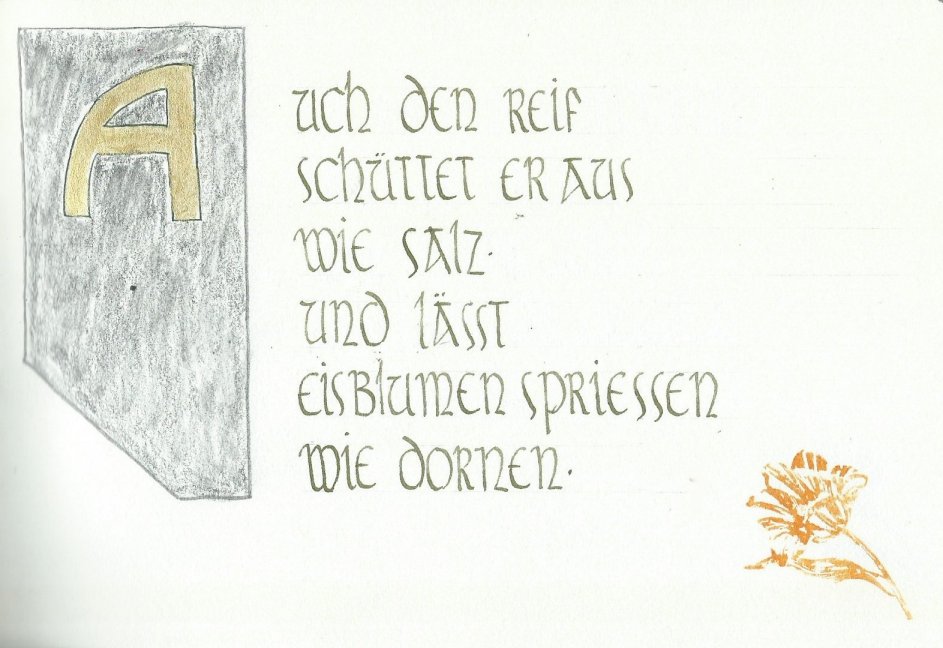 Auch den Reif
schüttet er aus
wie Salz.
und lässt
Eisblumen spriessen
wie Dornen.